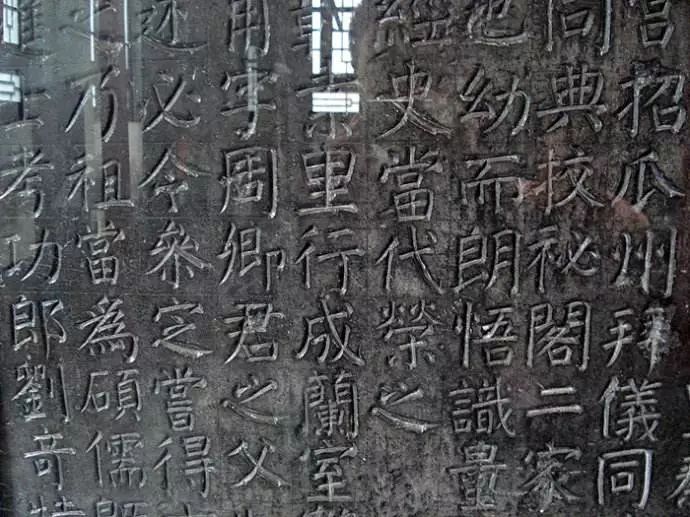 招瓜州拜儀同
同典校祕閣二家
也幼而朗悟識量
經史當代榮之
里行成蘭室
用字周卿君之父
述必令叅定嘗得
乃祖當為碩儒
士考功郎劉奇